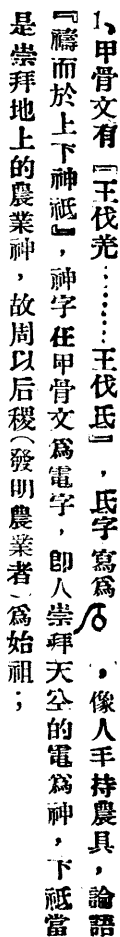 1、甲骨文有『王伐羌………王伐氐』，氐字寫爲　，像人手持農具，論語
『禱而於上下神祗』，神字在甲骨文爲電字，卽人崇拜天公的電爲神，下祗當
是崇拜地上的農業神，故周以后稷(發明農業者)爲始祖；